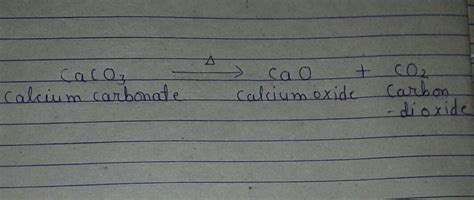 Δ
CaCO₃ ⟶ CaO + CO₂
calcium carbonate calcium oxide carbon
- dioxide